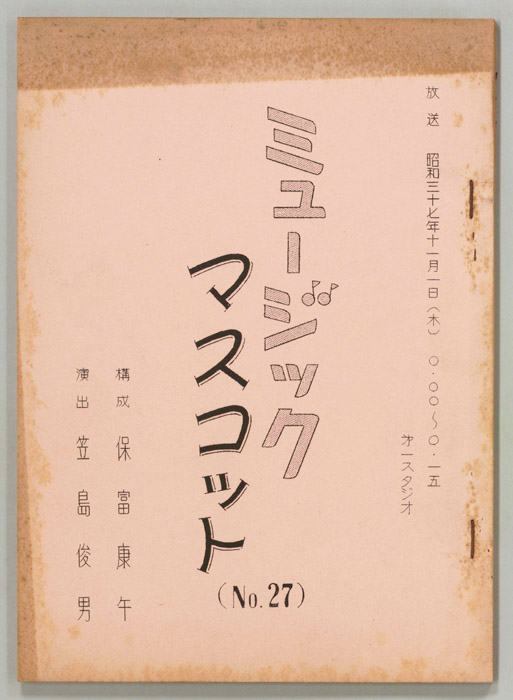 放送 昭和三十七年十一月一日(木) 〇・〇〇〜〇・一五
才一スタジオ
ミュージック
マスコット
(No.27)
構成 保富康午
演出 笠島俊男